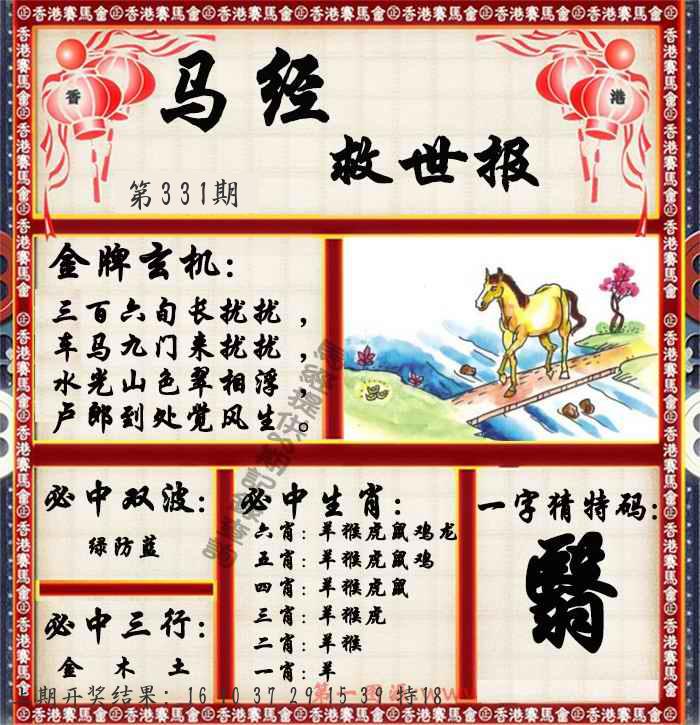 香港賽馬會
马经
救世报
香
港
第331期
金牌玄机：
三百六旬长扰扰，
车马九门来扰扰，
水光山色翠相浮，
卢郎到处觉风生。
必中双波：
绿防蓝
必中三行：
金 木 土
必中生肖：
六肖：羊猴虎鼠鸡龙
五肖：羊猴虎鼠鸡
四肖：羊猴虎鼠
三肖：羊猴虎
二肖：羊猴
一肖：羊
一字猜特码：
翳
期开奖结果：16 10 37 29 15 39 特18
第一图源 ww